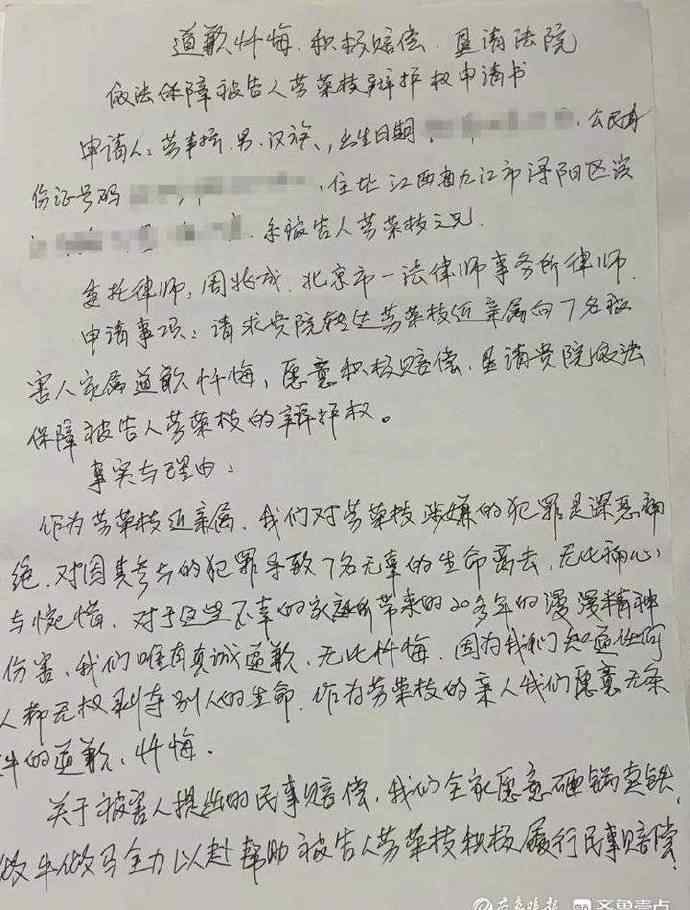 道歉忏悔、积极赔偿、恳请法院
依法保障被告人劳荣枝辩护权申请书
申请人：劳声桥，男，汉族，出生日期，公民身
份证号码，住址江西省九江市浔阳区滨
系被告人劳荣枝之兄.
委托律师：周兆成，北京市一法律师事务所律师.
申请事项：请求贵院转达劳荣枝近亲属向7名被
害人家属道歉忏悔，愿意积极赔偿，恳请贵院依法
保障被告人劳荣枝的辩护权。
事实与理由：
作为劳荣枝近亲属，我们对劳荣枝涉嫌的犯罪是深恶痛
绝，对因其参与的犯罪导致7名无辜的生命离去，无比痛心
与惋惜，对于这些不幸的家庭所带来的20多年的漫漫精神
伤害，我们唯有真诚道歉，无比忏悔，因为我们知道任何
人都无权剥夺别人的生命，作为劳荣枝的亲人我们愿意无条
件的道歉、忏悔。
关于被害人提出的民事赔偿，我们全家愿意砸锅卖铁，
做牛做马全力以赴帮助被告人劳荣枝积极履行民事赔偿
齐鲁晚报 齐鲁壹点